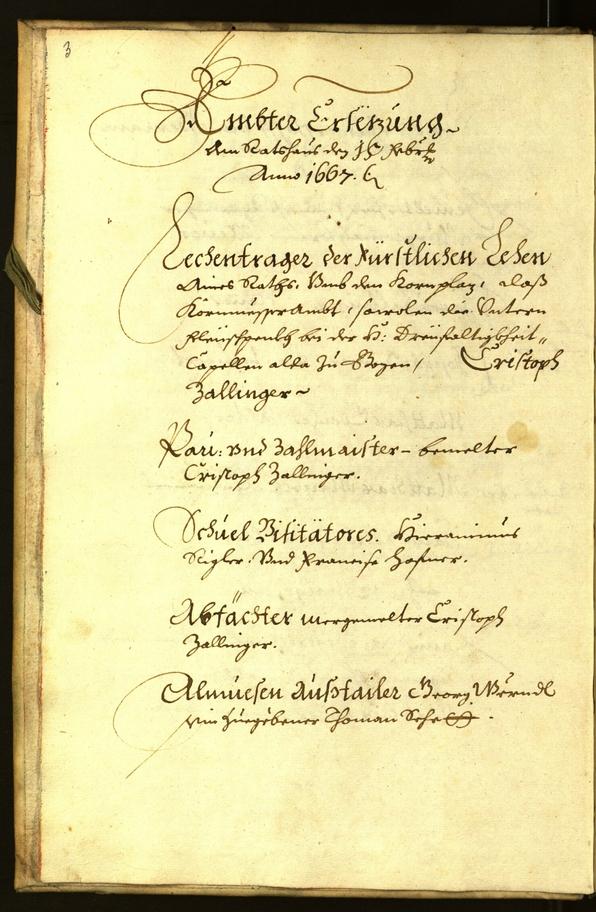 3
Ämbter Ersëtzung
Am Rathshaus den 15 Febr:
Anno 1667.
Lechentrager der Fürstlichen Lehen
Aines Raths, Vmb den Kornplaz, alß
Kornmesser Ambt, sowolen die Vntern
Fleischpenkh bei der H: Dreyfaltigkheit
Capellen alda zu Bozen, Cristoph
Zallinger
Paw: vnd Zahlmaister bemelter
Cristoph Zallinger.
Schuel Visitätores. Hieronimus
Rigler. Vnd Francisc Hafner.
Abfächter vorgemelter Cristoph
Zallinger.
Almuesen Außtailer Georg Wërndl
ein Zuegebener Thoman